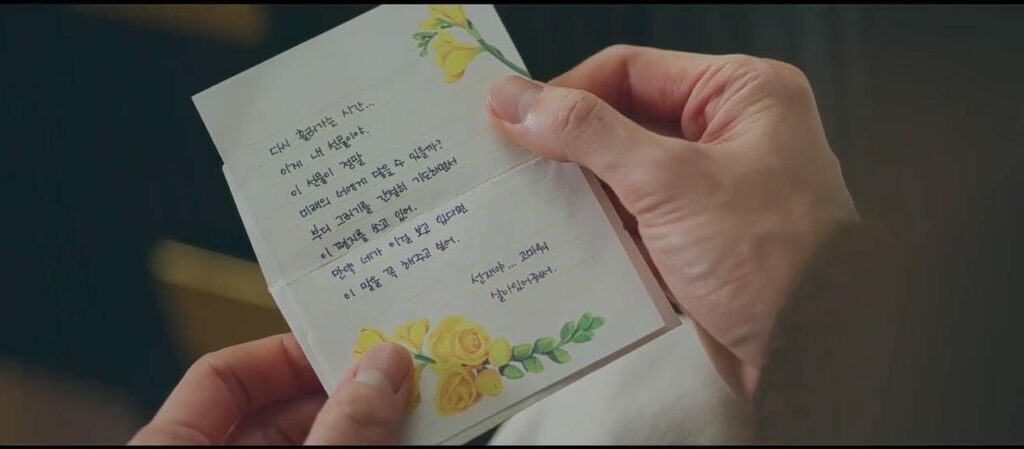 다시 흘러가는 시간...
이게 내 선물이야.
이 선물이 정말
미래의 너에게 닿을 수 있을까?
부디 그러기를 간절히 기도하면서
이 편지를 쓰고 있어.
만약 네가 이걸 보고 있다면
이 말을 꼭 해주고 싶어.
선재야... 고마워
살아있어줘서.